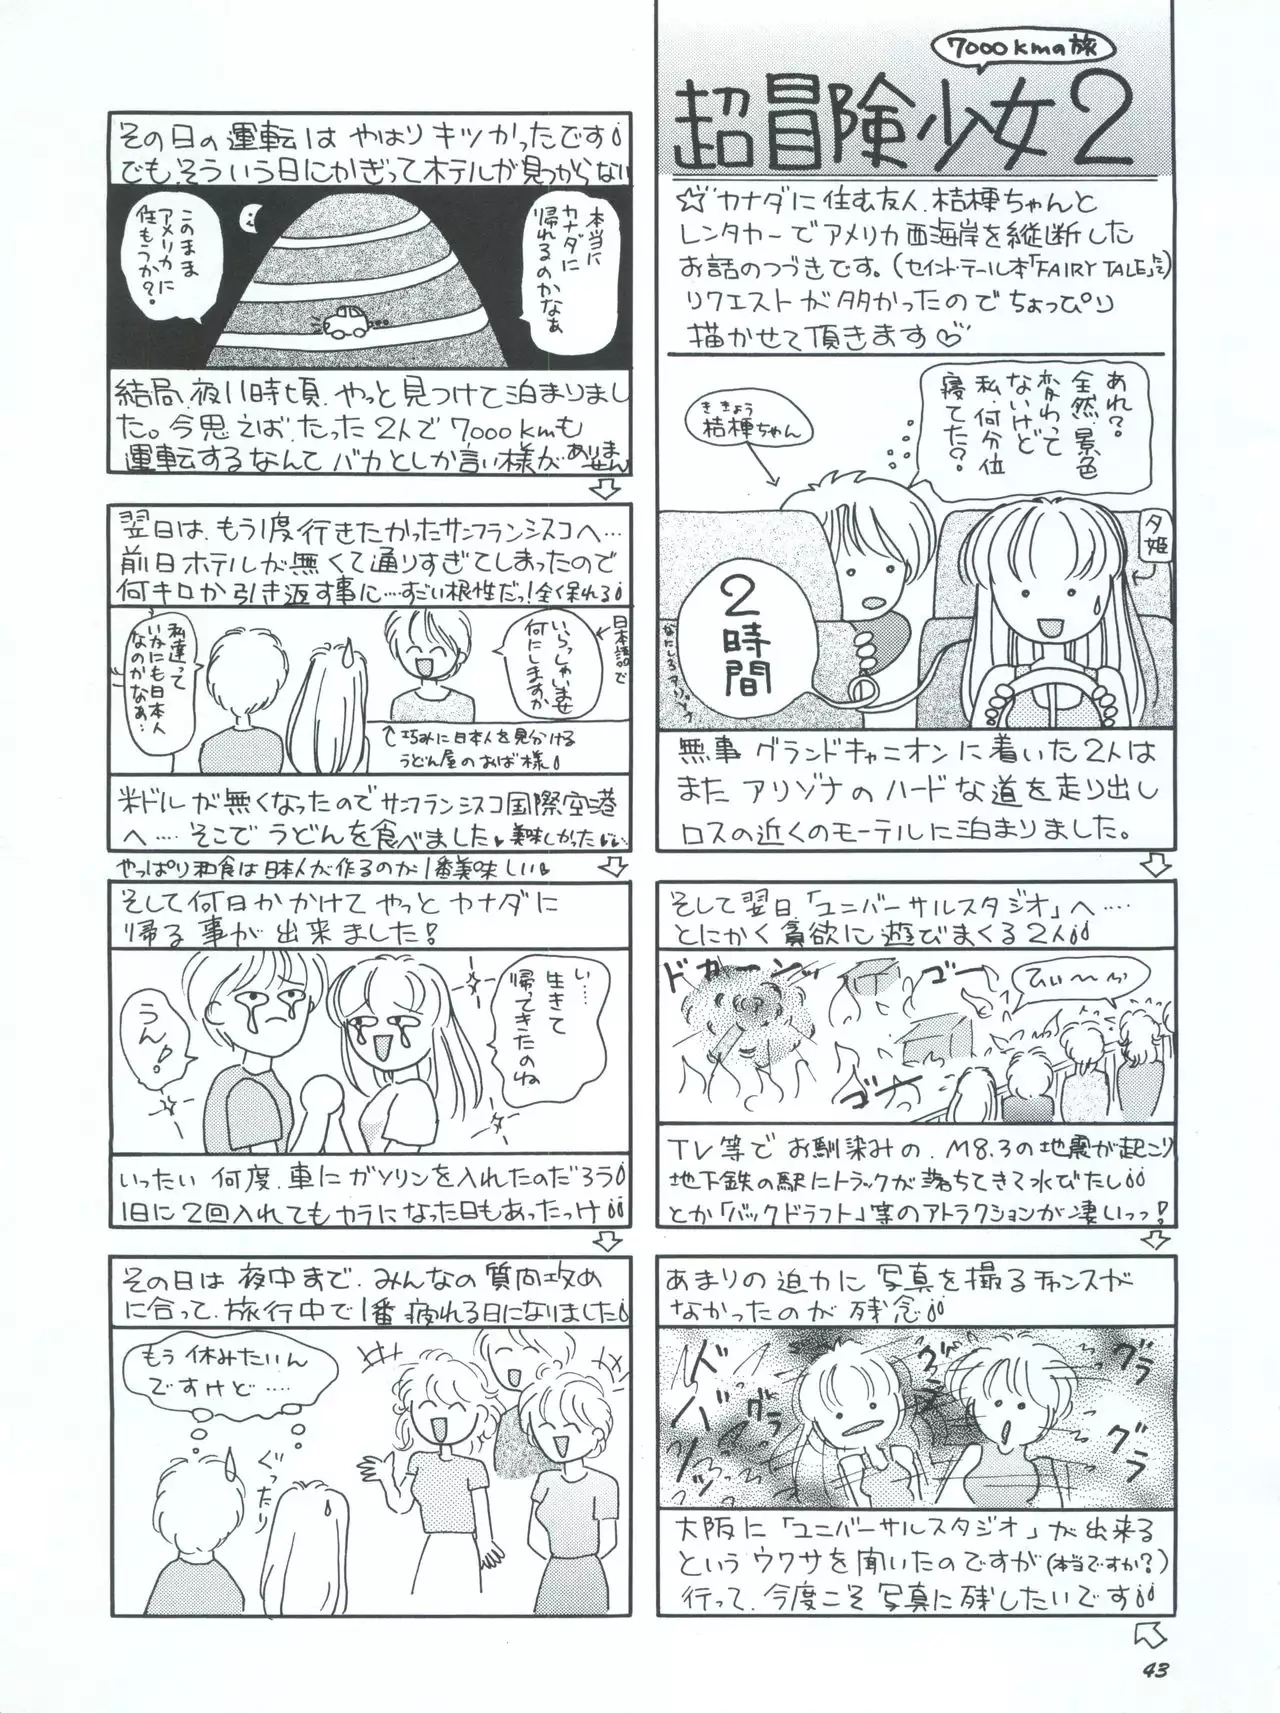 7000kmの旅
超冒険少女2
☆カナダに住む友人、桔梗ちゃんと
レンタカーでアメリカ西海岸を縦断した
お話のつづきです。(セイント・テール本「FAIRY TALE」にて)
リクエストが多かったのでちょっぴり
描かせて頂きます♡
あれ?
全然景色
変わって
ないけど
私、何分位
寝てた?
ききょう
桔梗ちゃん
夕姫
2時間
なにしろアリゾナ
無事グランドキャニオンに着いた2人は
またアリゾナのハードな道を走り出し
ロスの近くのモーテルに泊まりました。
そして翌日「ユニバーサルスタジオ」へ‥‥
とにかく貪欲に遊びまくる2人
ドガーンッ
ゴーー
ひぃ〜〜っ
ゴーー
TV等でお馴染みの、M8.3の地震が起こり
地下鉄の駅にトラックが落ちてきて水びたし
とか「バックドラフト」等のアトラクションが凄いっっ!
あまりの迫力に写真を撮るチャンスが
なかったのが残念
グラ
グラ
グラ
グラ
大阪に「ユニバーサルスタジオ」が出来る
というウワサを聞いたのですが(本当ですか?)
行って、今度こそ写真に残したいです
43
その日の運転はやはりキツかったです
でも、そういう日にかぎってホテルが見つからない
本当に
カナダに
帰れるのかなぁ
このまま
アメリカに
住もうか?
結局、夜11時頃、やっと見つけて泊まりまし
た。今思えば、たった2人で7000kmも
運転するなんてバカとしか言い様がありません
翌日は、もう1度行きたかったサンフランシスコへ…
前日ホテルが無くて通りすぎてしまったので
何キロか引き返す事に…すごい根性だっ!全く保れる
日本語で
いらっしゃいませ
何にしますか
私達って
いかにも日本人
なのかなぁ…
↑巧みに日本人を見分ける
うどん屋のおば様
米ドルが無くなったのでサンフランシスコ国際空港
へ‥‥そこでうどんを食べました♥美味しかった
やっぱり和食は日本人が作るのが1番美味しい♥
そして何日かかけてやっとカナダに
帰る事が出来ました!
い……
生きて
帰ってきたのね
うん!
いったい何度、車にガソリンを入れたのだろう
1日に2回入れてもカラになった日もあったっけ
その日は夜中まで、みんなの質問攻め
に合って、旅行中で1番疲れる日になりました
もう休みたいん
ですけど……
ぐったり